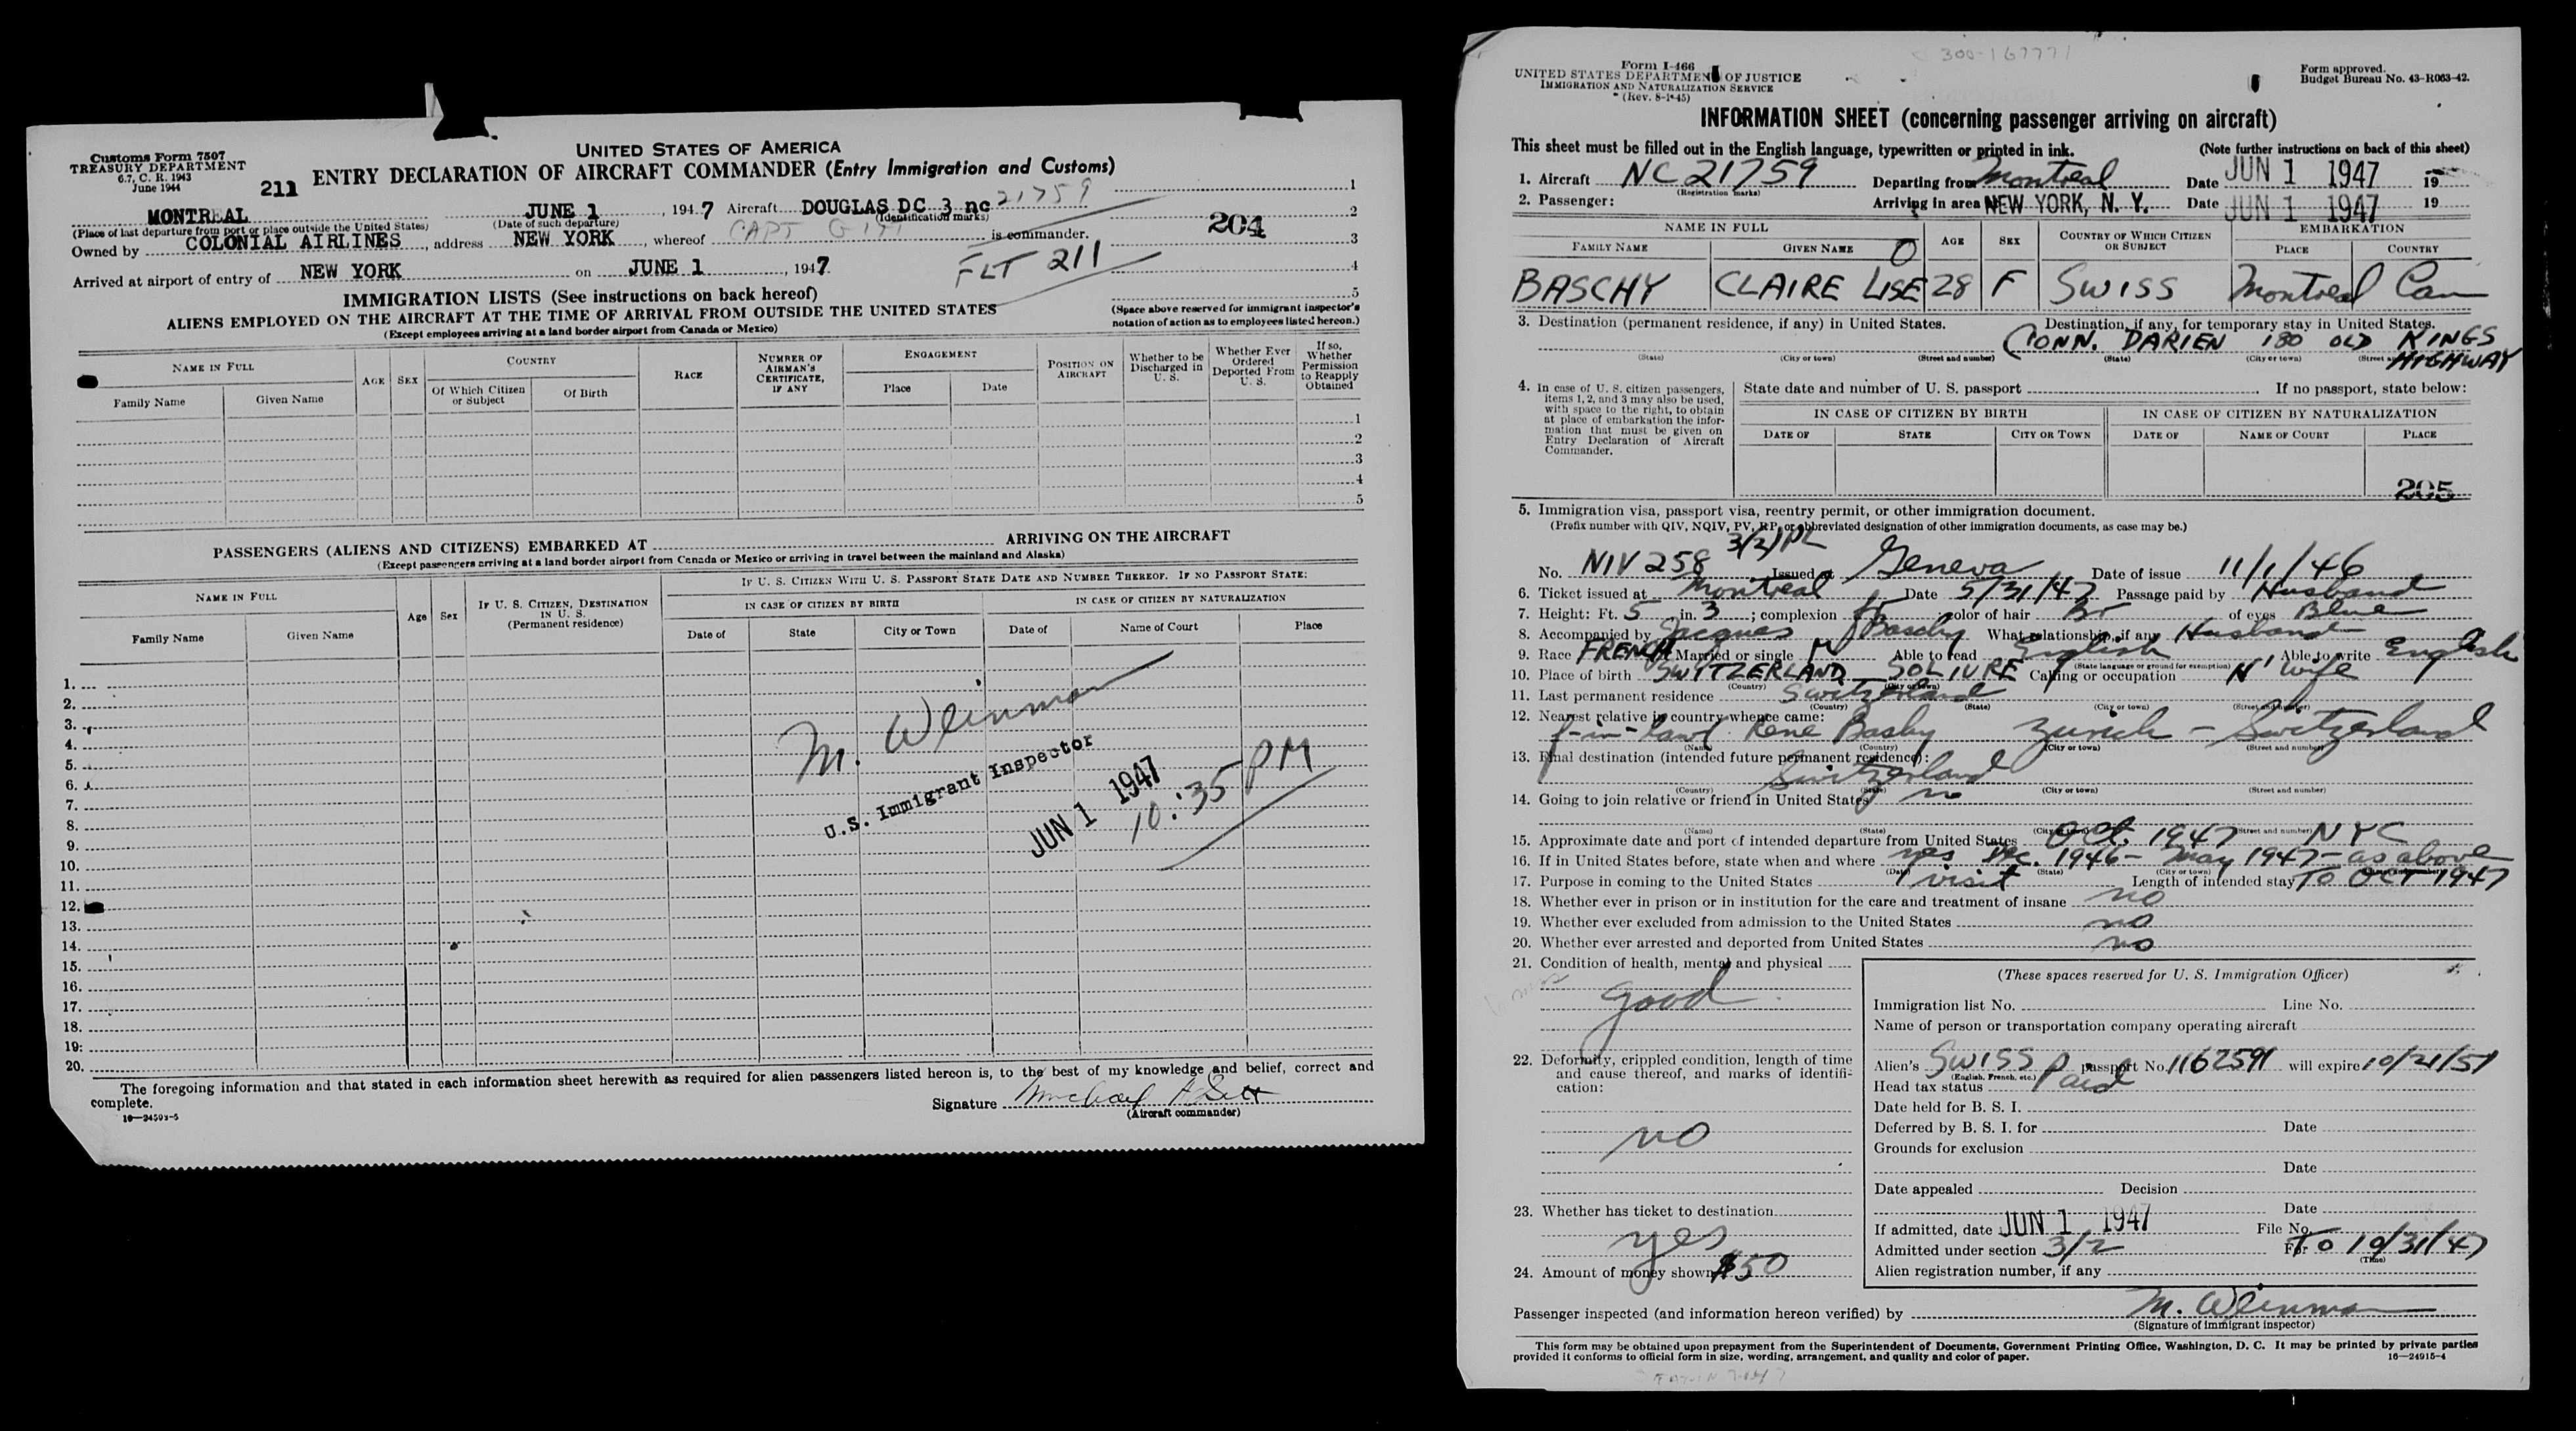 Customs Form 7507
TREASURY DEPARTMENT
6.7, C. R. 1943
June 1944
211
UNITED STATES OF AMERICA
ENTRY DECLARATION OF AIRCRAFT COMMANDER (Entry Immigration and Customs)
MONTREAL JUNE 1, 1947 Aircraft DOUGLAS DC 3 nc 21759
(Place of last departure from port or place outside the United States) (Date of such departure) (Identification marks)
204
Owned by COLONIAL AIRLINES, address NEW YORK, whereof CAPT is commander.
Arrived at airport of entry of NEW YORK on JUNE 1, 1947 FLT 211
1
2
3
4
5
IMMIGRATION LISTS (See instructions on back hereof)
ALIENS EMPLOYED ON THE AIRCRAFT AT THE TIME OF ARRIVAL FROM OUTSIDE THE UNITED STATES
(Except employees arriving at a land border airport from Canada or Mexico)
(Space above reserved for immigrant inspector's notation of action as to employees listed hereon.)
NAME IN FULL
Family Name Given Name
AGE SEX
COUNTRY
Of Which Citizen or Subject Of Birth
RACE
NUMBER OF AIRMAN'S CERTIFICATE, IF ANY
ENGAGEMENT
Place Date
POSITION ON AIRCRAFT
Whether to be Discharged in U. S.
Whether Ever Ordered Deported From U. S.
If so, Whether Permission to Reapply Obtained
1
2
3
4
5
PASSENGERS (ALIENS AND CITIZENS) EMBARKED AT ARRIVING ON THE AIRCRAFT
(Except passengers arriving at a land border airport from Canada or Mexico or arriving in travel between the mainland and Alaska)
NAME IN FULL
Family Name Given Name
Age Sex
IF U. S. CITIZEN, DESTINATION IN U. S. (Permanent residence)
IF U. S. CITIZEN WITH U. S. PASSPORT STATE DATE AND NUMBER THEREOF. IF NO PASSPORT STATE:
IN CASE OF CITIZEN BY BIRTH IN CASE OF CITIZEN BY NATURALIZATION
Date of State City or Town Date of Name of Court Place
1.
2.
3.
4.
5.
6.
7.
8.
9.
10.
11.
12.
13.
14.
15.
16.
17.
18.
19.
20.
M. Weinman
U.S. Immigrant Inspector
JUN 1 1947
10:35 PM
The foregoing information and that stated in each information sheet herewith as required for alien passengers listed hereon is, to the best of my knowledge and belief, correct and
complete.
16—24593-5
Signature Michael
(Aircraft commander)
300-167771
Form I-466
UNITED STATES DEPARTMENT OF JUSTICE
IMMIGRATION AND NATURALIZATION SERVICE
(Rev. 8-1-45)
Form approved.
Budget Bureau No. 43-R063-42.
INFORMATION SHEET (concerning passenger arriving on aircraft)
This sheet must be filled out in the English language, typewritten or printed in ink. (Note further instructions on back of this sheet)
1. Aircraft NC 21759 Departing from Montreal Date JUN 1 1947 19
(Registration marks)
2. Passenger: Arriving in area NEW YORK, N. Y. Date JUN 1 1947 19
NAME IN FULL
FAMILY NAME GIVEN NAME
AGE SEX
COUNTRY OF WHICH CITIZEN OR SUBJECT
EMBARKATION
PLACE COUNTRY
BASCHY CLAIRE LISE 28 F SWISS Montreal Can
3. Destination (permanent residence, if any) in United States. Destination, if any, for temporary stay in United States.
CONN. DARIEN 180 OLD KINGS HIGHWAY
(State) (City or town) (Street and number) (State) (City or town) (Street and number)
4. In case of U. S. citizen passengers, items 1, 2, and 3 may also be used, with space to the right, to obtain at place of embarkation the information that must be given on Entry Declaration of Aircraft Commander.
State date and number of U. S. passport If no passport, state below:
IN CASE OF CITIZEN BY BIRTH IN CASE OF CITIZEN BY NATURALIZATION
DATE OF STATE CITY OR TOWN DATE OF NAME OF COURT PLACE
205
5. Immigration visa, passport visa, reentry permit, or other immigration document.
(Prefix number with QIV, NQIV, PV, RP, or abbreviated designation of other immigration documents, as case may be.)
No. NIV 258 3/2/PL Issued at Geneva Date of issue 11/1/46
6. Ticket issued at Montreal Date 5/31/47 Passage paid by Husband
7. Height: Ft. 5 in. 3; complexion fr color of hair Br of eyes Blue
8. Accompanied by Jacques Baschy What relationship, if any Husband
9. Race FRENCH Married or single M Able to read English Able to write English
(State language or ground for exemption)
10. Place of birth SWITZERLAND SOLIURE Calling or occupation H'wife
(Country) (City or town)
11. Last permanent residence Switzerland
(Country) (State) (City or town) (Street and number)
12. Nearest relative in country whence came:
f-in-law Rene Bashy Zurich - Switzerland
(Name) (Country) (City or town) (Street and number)
13. Final destination (intended future permanent residence):
Switzerland
(Country) (State) (City or town) (Street and number)
14. Going to join relative or friend in United States no
(Name) (State) (City or town) (Street and number)
15. Approximate date and port of intended departure from United States Oct. 1947 NYC
16. If in United States before, state when and where yes Dec. 1946 - May 1947 - as above
(Date) (State) (City or town)
17. Purpose in coming to the United States visit Length of intended stay TO OCT 1947
18. Whether ever in prison or in institution for the care and treatment of insane no
19. Whether ever excluded from admission to the United States no
20. Whether ever arrested and deported from United States no
21. Condition of health, mental and physical
good
22. Deformity, crippled condition, length of time and cause thereof, and marks of identification:
no
23. Whether has ticket to destination
yes
24. Amount of money shown $50
(These spaces reserved for U. S. Immigration Officer)
Immigration list No. Line No.
Name of person or transportation company operating aircraft
Alien's SWISS passport No. 1162591 will expire 10/21/51
(English, French, etc.)
Head tax status Paid
Date held for B. S. I.
Deferred by B. S. I. for Date
Grounds for exclusion
Date
Date appealed Decision
Date
If admitted, date JUN 1 1947 File No.
Admitted under section 3/2 For TO 10/31/47
(Time)
Alien registration number, if any
Passenger inspected (and information hereon verified) by M. Weinman
(Signature of immigrant inspector)
This form may be obtained upon prepayment from the Superintendent of Documents, Government Printing Office, Washington, D. C. It may be printed by private parties
provided it conforms to official form in size, wording, arrangement, and quality and color of paper.
16—24915-4